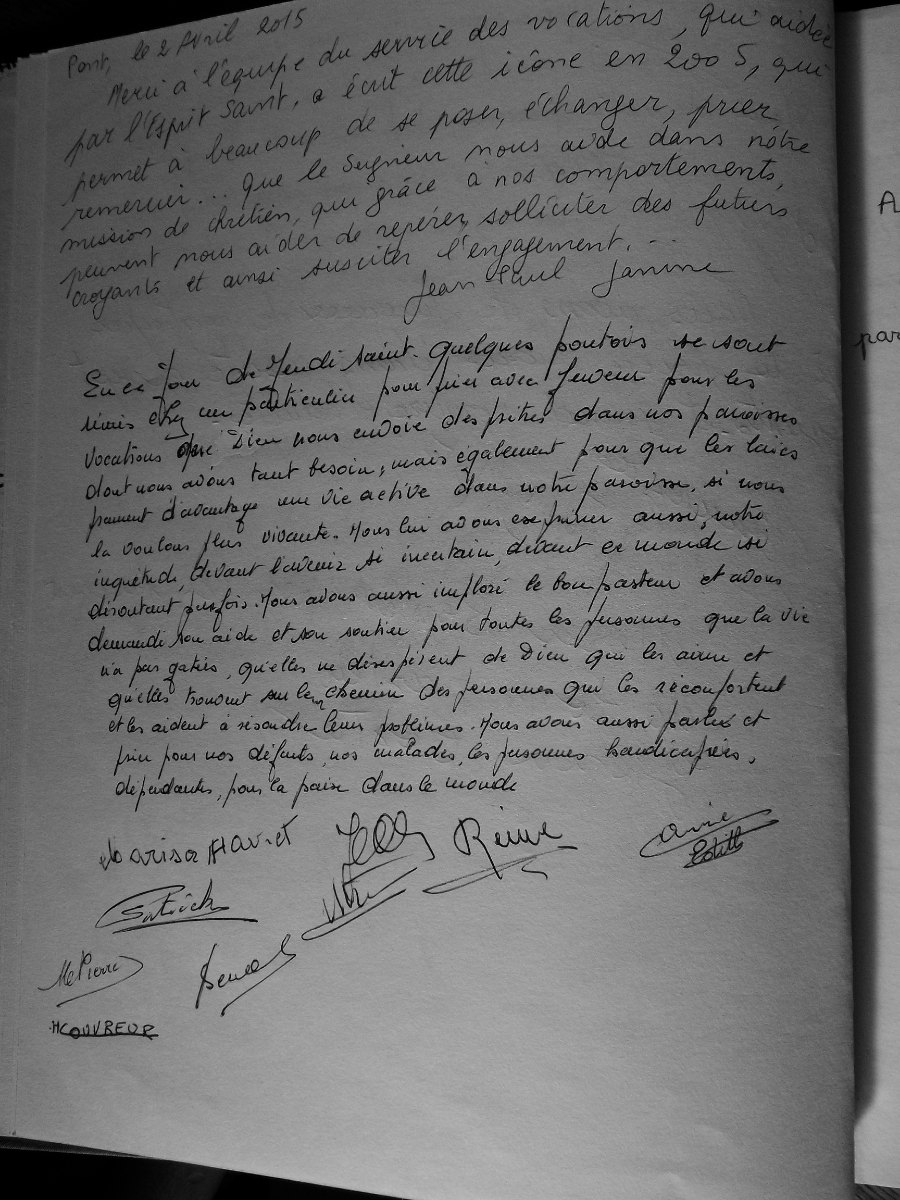 Pont, le 2 Avril 2015
Merci à l'équipe du service des vocations, qui aidée
par l'Esprit Saint, a écrit cette icône en 2005, qui
permet à beaucoup de se poser, échanger, prier
remercier... Que le Seigneur nous aide dans nôtre
mission de chrétien, que grâce à nos comportements,
peuvent nous aider de repérer, solliciter des futurs
croyants et ainsi susciter l'engagement...
Jean Paul Janine
En ce Jour de Jeudi saint. Quelques pontois se sont
réunis chez un particulier pour prier avec ferveur pour les
vocations que Dieu nous envoie des prêtres dans nos paroisses
dont nous avons tant besoin, mais également pour que les laïcs
prennent d'avantage une vie active dans notre paroisse, si nous
la voulons plus vivante. Nous lui avons exprimer aussi, notre
inquiétude, devant l'avenir si incertain, devant ce monde si
déroutant parfois. Nous avons aussi imploré le bon pasteur et avons
demandé son aide et son soutien pour toutes les personnes que la vie
n'a pas gatées, qu'elles ne désespèrent de Dieu qui les aime et
qu'elles trouvent sur leur chemin des personnes qui les réconfortent
et les aident à résoudre leurs problèmes. Nous avons aussi parlé et
prier pour nos défunts, nos malades, les personnes handicapées,
dépendantes, pour la paix dans le monde
Marisa
Reine
Edith
Patrick
Me Pierre
H COUVREUR
A
par